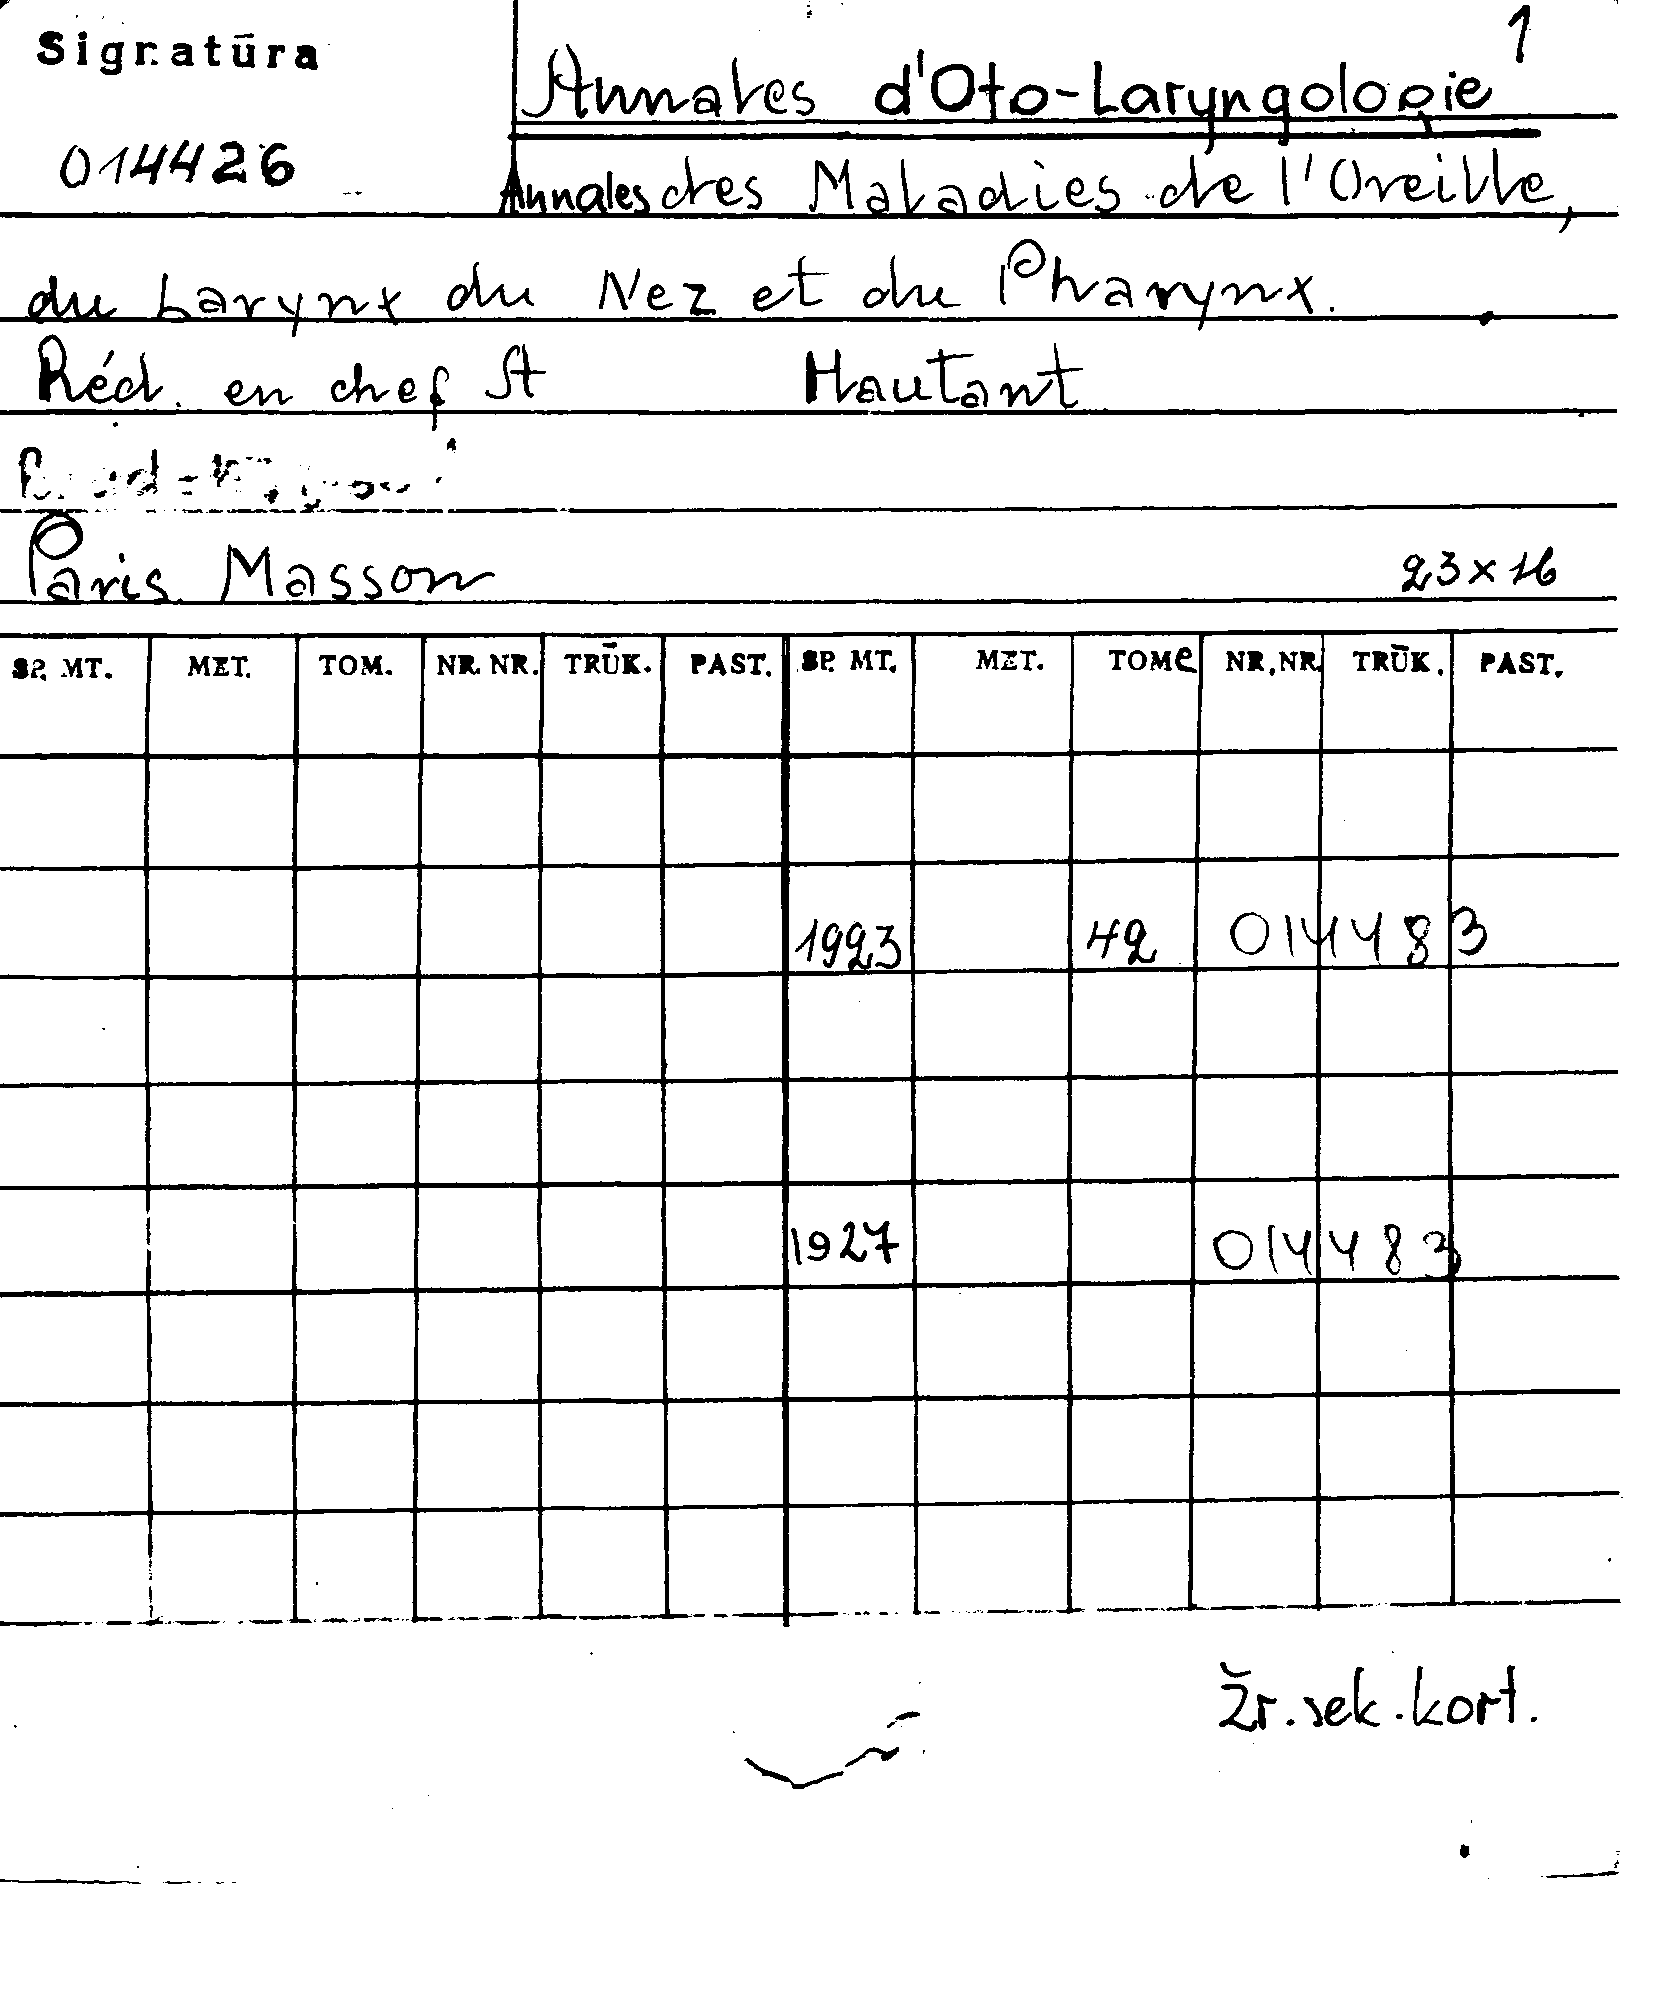 1
Signatūra
Annales d'Oto-Laryngologie
014426
Annales des Maladies de l'Oreille,
du Larynx du Nez et du Pharynx.
Réd. en chef A Hautant
Paris Masson 23×16
SP. MT. MET. TOM. NR. NR. TRŪK. PAST. SP. MT. MET. TOMe NR. NR. TRŪK. PAST.
1923 42 014483
1927 014483
Žr. sek. kort.